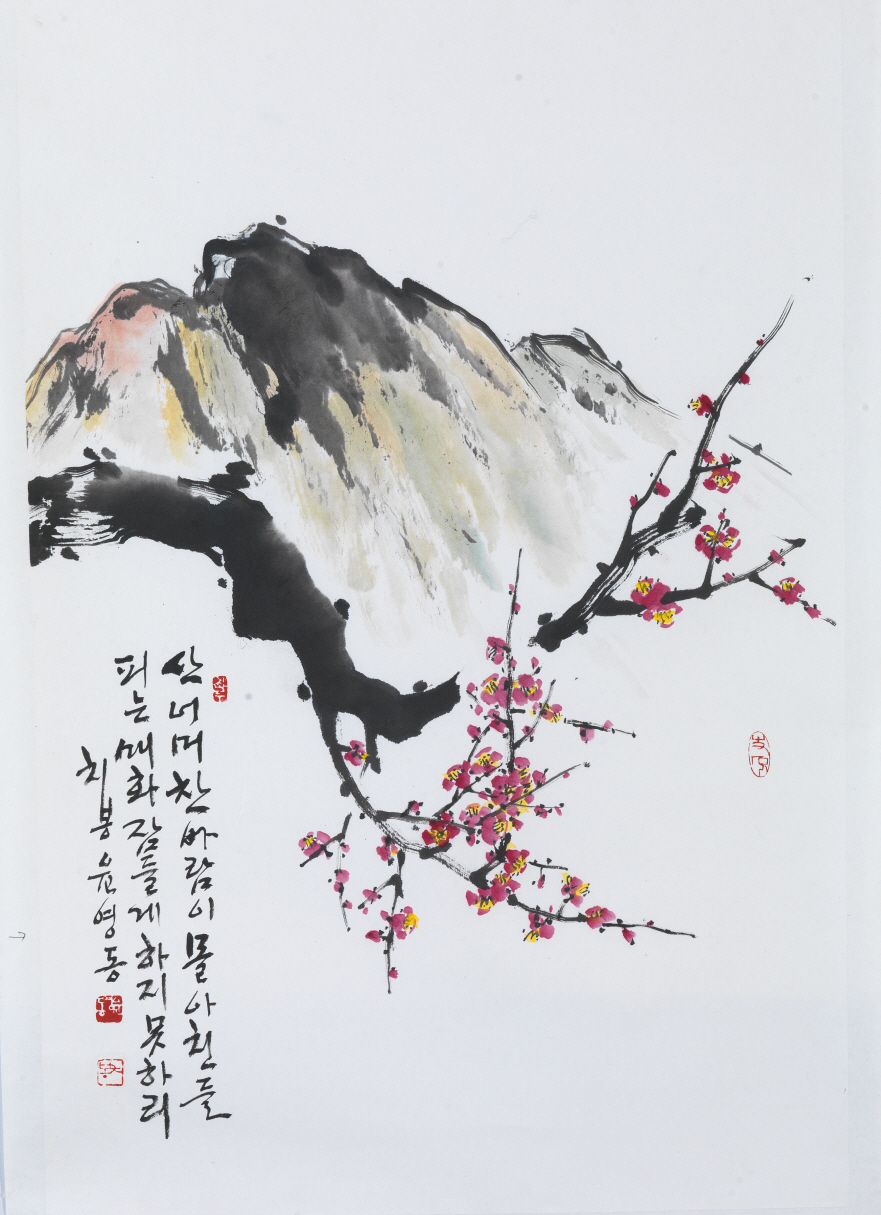 산너머 찬바람이 몰아친들
피는 매화 잠들게 하지 못하리
치봉 윤영동